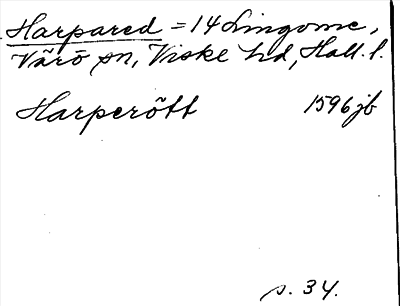 Harpared = 14 Lingome,
Värö sn, Viske hd, Hall. l.
Harperött 1596 jb
s. 34.